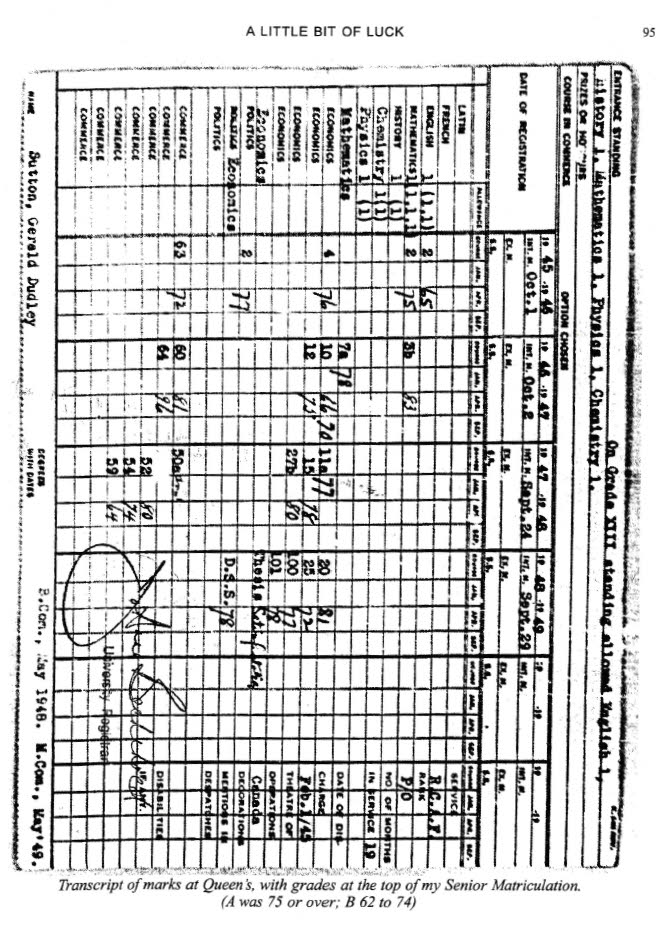 A LITTLE BIT OF LUCK 95
ENTRANCE STANDING On Grade XIII standing allowed English 1,
History 1, Mathematics 1, Physics 1, Chemistry 1.
PRIZES OR
COURSE IN COMMERCE OPTION CHOSEN
19 45 -19 46 19 46 -19 47 19 47 -19 48 19 48 -19 49 19 -19 19 -19
DATE OF REGISTRATION INT. M. Oct.1 INT. M. Oct.2 INT. M. Sept.24 INT. M. Sept.29 INT. M. INT. M.
EX. M. EX. M. EX. M. EX. M. EX. M. EX. M.
S.S. S.S. S.S. S.S. S.S. S.S.
ALLOWANCE COURSE JAN. APR. SEP. COURSE JAN. APR. SEP. COURSE JAN. APR. SEP. COURSE JAN. APR. SEP.
LATIN SERVICE
FRENCH R.C.A.F.
ENGLISH 1 (1,1) 2 65 RANK
MATHEMATICS 1(1,1,1) 2 75 3b 83 P/O
HISTORY 1 (1) NO OF MONTHS
Chemistry 1(1) IN SERVICE 19
Physics 1 (1)
Mathematics 7a 78 DATE OF DIS-
ECONOMICS 4 76 10 66 70 11a 77 20 81 CHARGE
ECONOMICS 12 75 15 78 25 72 Feb.1/45
ECONOMICS 27b 80 100 77 THEATRE OF
ECONOMICS 101 78 OPERATIONS
Economics Thesis Satisfactory Canada
POLITICS 2 77 DECORATIONS
POLITICS Economics D.S.S. 78 MENTIONS IN
POLITICS DESPATCHES
COMMERCE 63 72 60 81 50a
COMMERCE 64 86 DISABILITIES
COMMERCE 52 80 IF ANY
COMMERCE 54 74
COMMERCE 59 64
COMMERCE
University Registrar
NAME Sutton, Gerald Dudley DEGREES WITH DATES B.Com., May 1948. M.Com., May'49.
Transcript of marks at Queen's, with grades at the top of my Senior Matriculation.
(A was 75 or over; B 62 to 74)